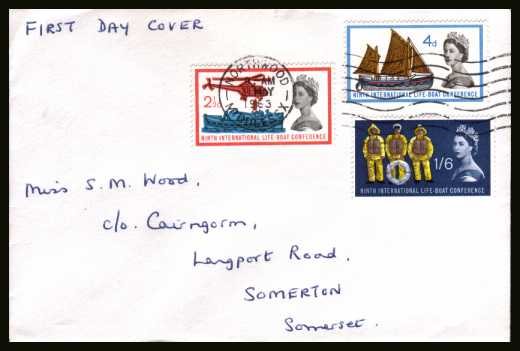 FIRST DAY COVER
4d
NINTH INTERNATIONAL LIFE-BOAT CONFERENCE
NORTHWOOD
AM
MAY
1963
MIDDLESEX
2½d
NINTH INTERNATIONAL LIFE-BOAT CONFERENCE
1/6
NINTH INTERNATIONAL LIFE-BOAT CONFERENCE
Miss S. M. Wood,
c/o. Cairngorm,
Langport Road,
SOMERTON
Somerset.